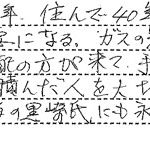 年. 住んで40年
になる. ガスの
の方が来て. 手
積んだ人を大切
の黒崎氏にも永